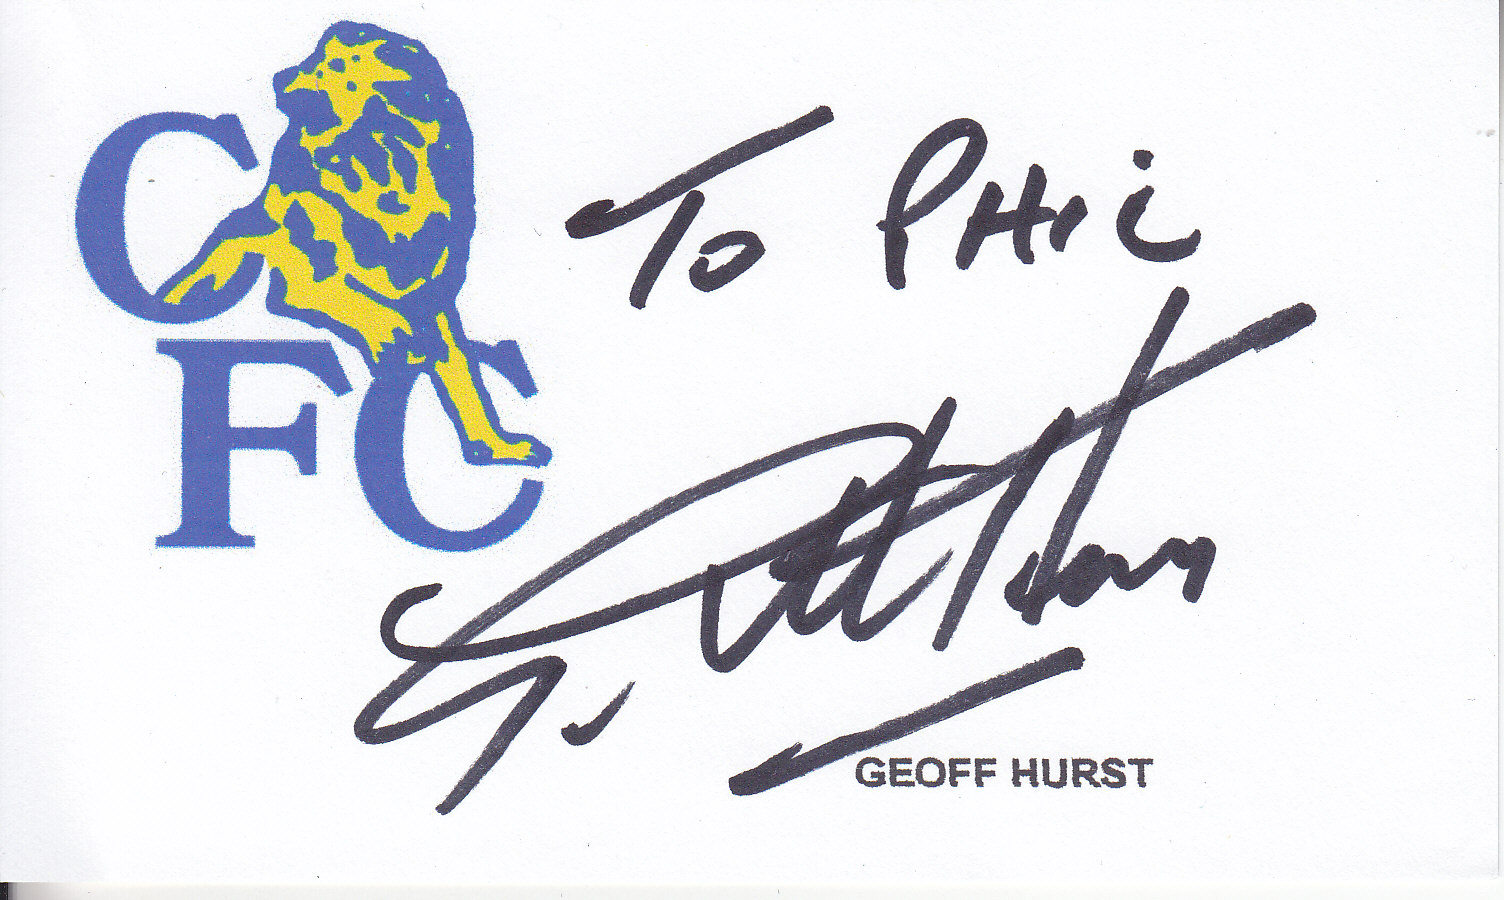 C
FC
To PHIL
Geoff Hurst
GEOFF HURST